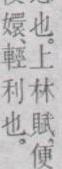 也。上林賦、便
嬛、輕利也。